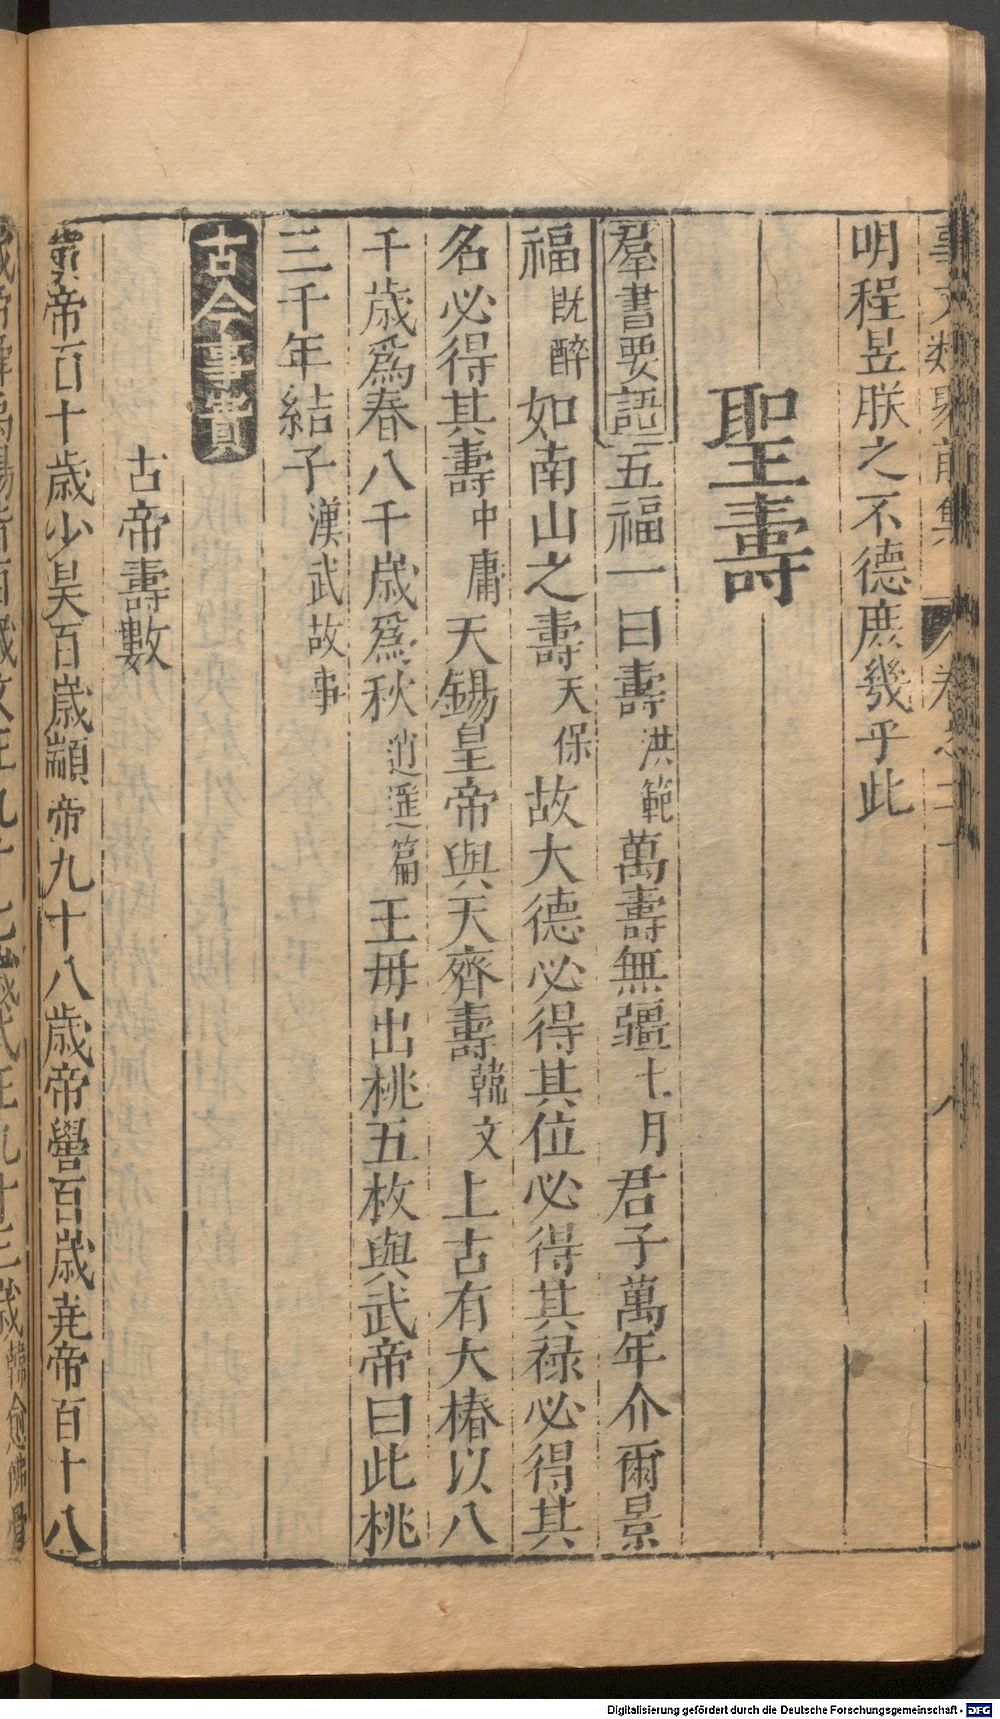 明程昱朕之不德庶幾乎此
聖壽
羣書要語 五福一曰壽洪範萬壽無疆七月君子萬年介爾景
福既醉如南山之壽天保故大德必得其位必得其祿必得其
名必得其壽中庸天錫皇帝與天齊壽韓文上古有大椿以八
千歲爲春八千歲爲秋逍遙篇王母出桃五枚與武帝曰此桃
三千年結子漢武故事
古今事實
古帝壽數
黃帝百十歲少昊百歲顓帝九十八歲帝嚳百歲堯帝百十八
Digitalisierung gefördert durch die Deutsche Forschungsgemeinschaft - DFG